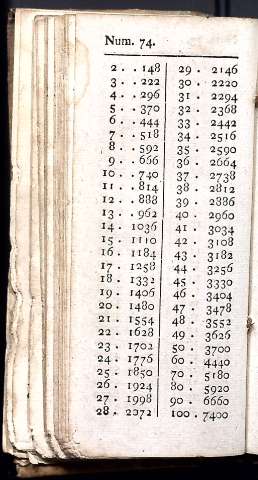 Num. 74.
2 . . 148 29 . 2146
3 . . 222 30 . 2220
4 . . 296 31 . 2294
5 . . 370 32 . 2368
6 . . 444 33 . 2442
7 . . 518 34 . 2516
8 . . 592 35 . 2590
9 . . 666 36 . 2664
10 . . 740 37 . 2738
11 . . 814 38 . 2812
12 . . 888 39 . 2886
13 . . 962 40 . 2960
14 . 1036 41 . 3034
15 . 1110 42 . 3108
16 . 1184 43 . 3182
17 . 1258 44 . 3256
18 . 1332 45 . 3330
19 . 1406 46 . 3404
20 . 1480 47 . 3478
21 . 1554 48 . 3552
22 . 1628 49 . 3626
23 . 1702 50 . 3700
24 . 1776 60 . 4440
25 . 1850 70 . 5180
26 . 1924 80 . 5920
27 . 1998 90 . 6660
28 . 2072 100 . 7400